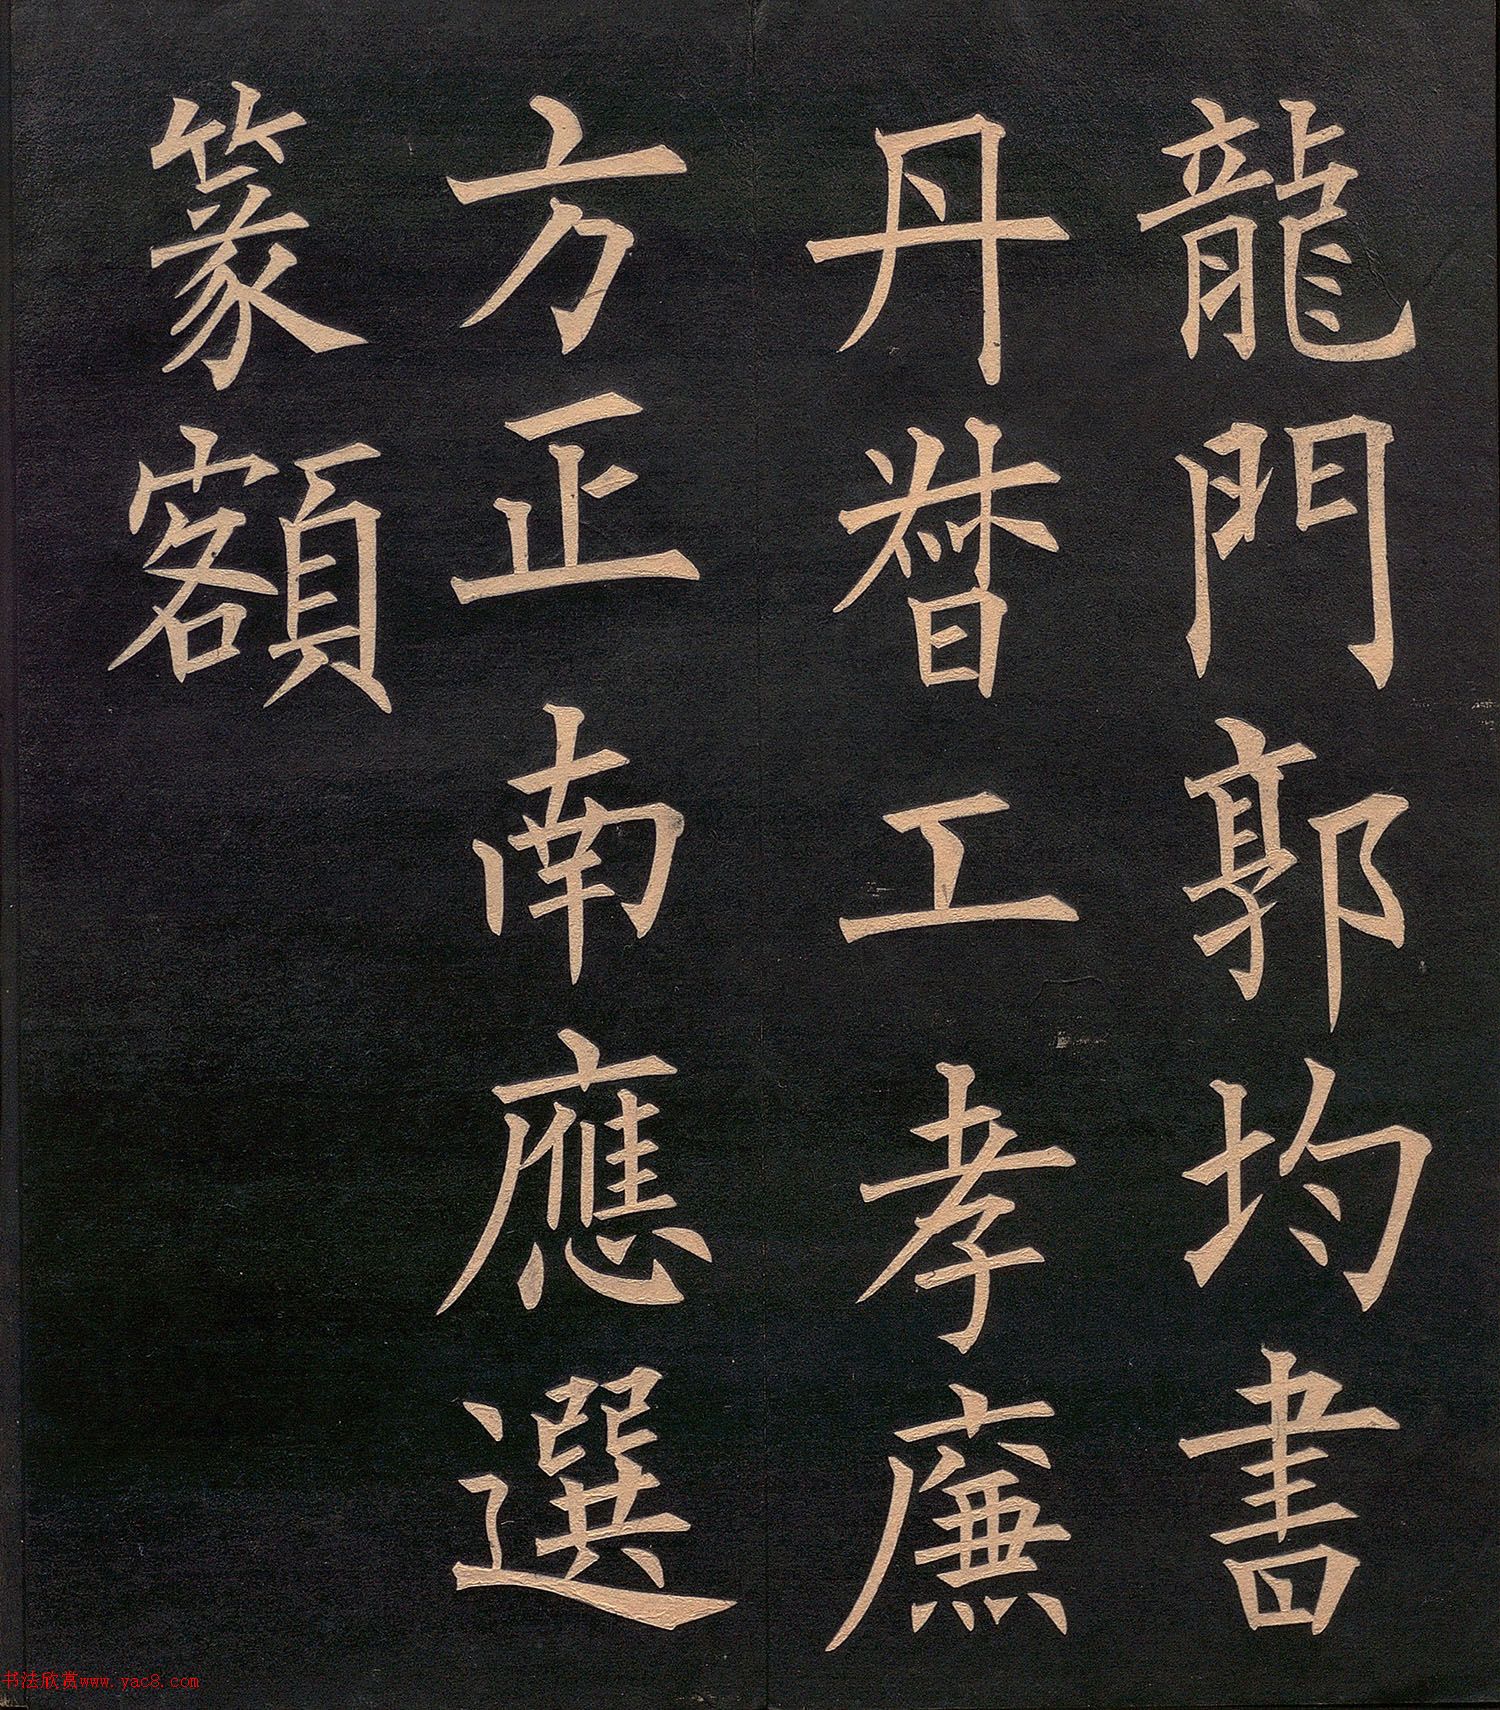 龍門郭均書
丹督工孝廉
方正南應選
篆額
书法欣赏www.yac8.com